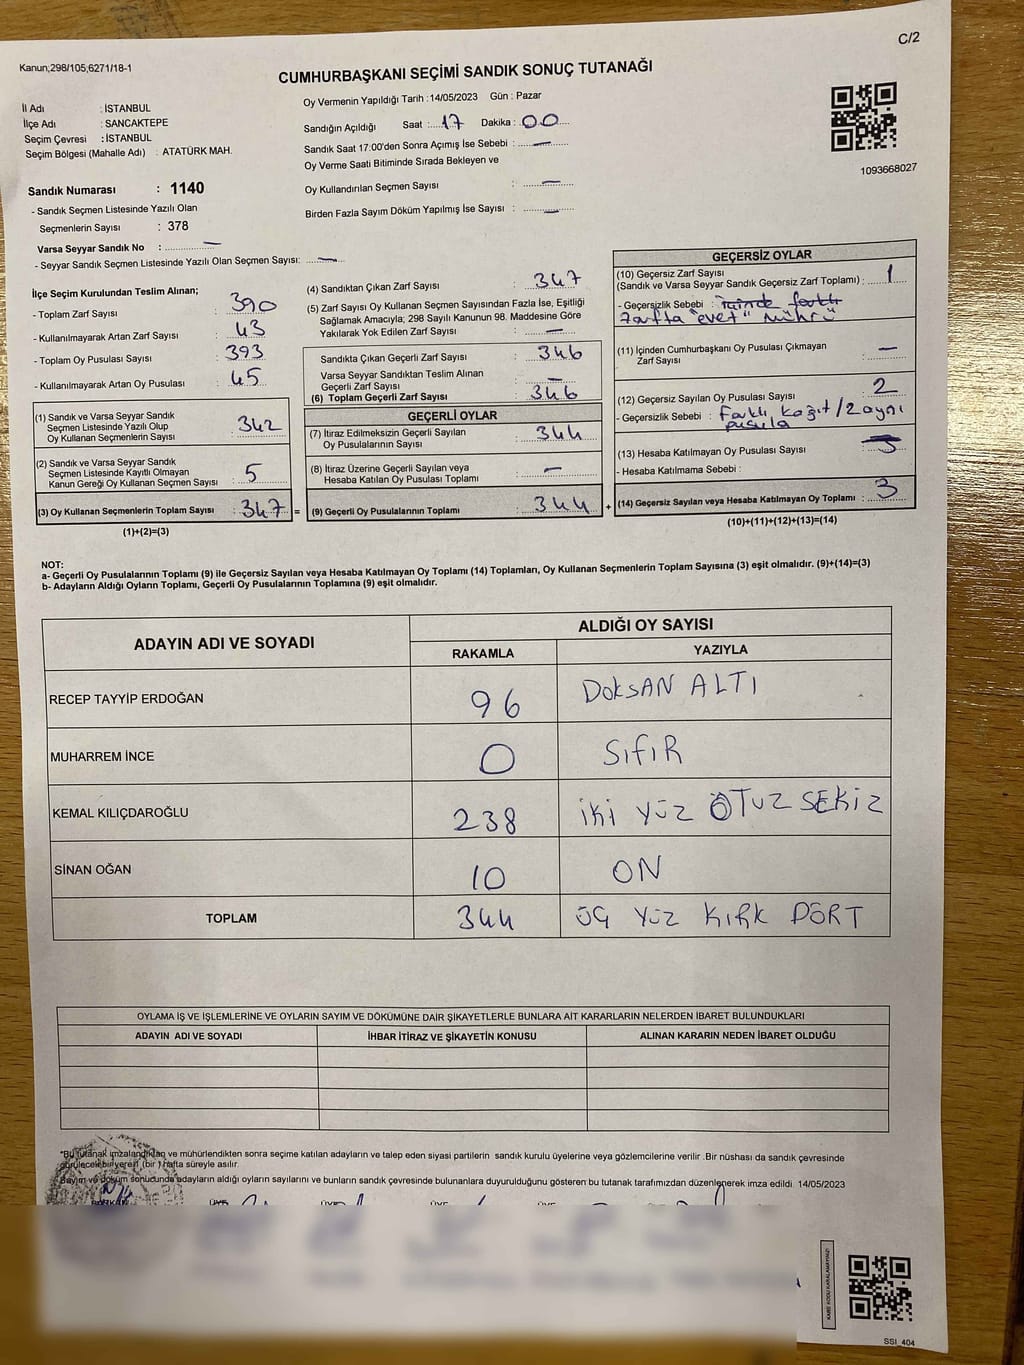 C/2
Kanun;298/105;6271/18-1
CUMHURBAŞKANI SEÇİMİ SANDIK SONUÇ TUTANAĞI
İl Adı : İSTANBUL
İlçe Adı : SANCAKTEPE
Seçim Çevresi : İSTANBUL
Seçim Bölgesi (Mahalle Adı) : ATATÜRK MAH.
Oy Vermenin Yapıldığı Tarih :14/05/2023 Gün : Pazar
Sandığın Açıldığı Saat : 17 Dakika : 00
Sandık Saat 17:00'den Sonra Açımış İse Sebebi : —
Oy Verme Saati Bitiminde Sırada Bekleyen ve
Oy Kullandırılan Seçmen Sayısı : —
Birden Fazla Sayım Döküm Yapılmış İse Sayısı : —
1093668027
Sandık Numarası : 1140
- Sandık Seçmen Listesinde Yazılı Olan
Seçmenlerin Sayısı : 378
Varsa Seyyar Sandık No : —
- Seyyar Sandık Seçmen Listesinde Yazılı Olan Seçmen Sayısı: —
İlçe Seçim Kurulundan Teslim Alınan;
- Toplam Zarf Sayısı : 390
- Kullanılmayarak Artan Zarf Sayısı : 43
- Toplam Oy Pusulası Sayısı : 393
- Kullanılmayarak Artan Oy Pusulası : 45
(1) Sandık ve Varsa Seyyar Sandık
Seçmen Listesinde Yazılı Olup
Oy Kullanan Seçmenlerin Sayısı : 342
(2) Sandık ve Varsa Seyyar Sandık
Seçmen Listesinde Kayıtlı Olmayan
Kanun Gereği Oy Kullanan Seçmen Sayısı : 5
(3) Oy Kullanan Seçmenlerin Toplam Sayısı : 347 =
(1)+(2)=(3)
(4) Sandıktan Çıkan Zarf Sayısı : 347
(5) Zarf Sayısı Oy Kullanan Seçmen Sayısından Fazla İse, Eşitliği
Sağlamak Amacıyla; 298 Sayılı Kanunun 98. Maddesine Göre
Yakılarak Yok Edilen Zarf Sayısı : —
Sandıkta Çıkan Geçerli Zarf Sayısı : 346
Varsa Seyyar Sandıktan Teslim Alınan
Geçerli Zarf Sayısı : —
(6) Toplam Geçerli Zarf Sayısı : 346
GEÇERLİ OYLAR
(7) İtiraz Edilmeksizin Geçerli Sayılan
Oy Pusulalarının Sayısı : 344
(8) İtiraz Üzerine Geçerli Sayılan veya
Hesaba Katılan Oy Pusulası Toplamı : —
(9) Geçerli Oy Pusulalarının Toplamı : 344 +
GEÇERSİZ OYLAR
(10) Geçersiz Zarf Sayısı
(Sandık ve Varsa Seyyar Sandık Geçersiz Zarf Toplamı) : 1
- Geçersizlik Sebebi : içinde farklı
zarfta "evet" mührü
(11) İçinden Cumhurbaşkanı Oy Pusulası Çıkmayan
Zarf Sayısı : —
(12) Geçersiz Sayılan Oy Pusulası Sayısı : 2
- Geçersizlik Sebebi : farklı kağıt/2 aynı
pusula
(13) Hesaba Katılmayan Oy Pusulası Sayısı :
- Hesaba Katılmama Sebebi :
(14) Geçersiz Sayılan veya Hesaba Katılmayan Oy Toplamı : 3
(10)+(11)+(12)+(13)=(14)
NOT:
a- Geçerli Oy Pusulalarının Toplamı (9) ile Geçersiz Sayılan veya Hesaba Katılmayan Oy Toplamı (14) Toplamları, Oy Kullanan Seçmenlerin Toplam Sayısına (3) eşit olmalıdır. (9)+(14)=(3)
b- Adayların Aldığı Oyların Toplamı, Geçerli Oy Pusulalarının Toplamına (9) eşit olmalıdır.
ADAYIN ADI VE SOYADI ALDIĞI OY SAYISI
RAKAMLA YAZIYLA
RECEP TAYYİP ERDOĞAN 96 DOKSAN ALTI
MUHARREM İNCE 0 SIFIR
KEMAL KILIÇDAROĞLU 238 iki YÜZ OTUZ SEKİZ
SİNAN OĞAN 10 ON
TOPLAM 344 ÜÇ YÜZ KIRK DÖRT
OYLAMA İŞ VE İŞLEMLERİNE VE OYLARIN SAYIM VE DÖKÜMÜNE DAİR ŞİKAYETLERLE BUNLARA AİT KARARLARIN NELERDEN İBARET BULUNDUKLARI
ADAYIN ADI VE SOYADI İHBAR İTİRAZ VE ŞİKAYETİN KONUSU ALINAN KARARIN NEDEN İBARET OLDUĞU
"Bu tutanak imzalandıktan ve mühürlendikten sonra seçime katılan adayların ve talep eden siyasi partilerin sandık kurulu üyelerine veya gözlemcilerine verilir .Bir nüshası da sandık çevresinde
görülecek bir yere 1 (bir ) hafta süreyle asılır.
Sayım ve döküm sonucunda adayların aldığı oyların sayılarını ve bunların sandık çevresinde bulunanlara duyurulduğunu gösteren bu tutanak tarafımızdan düzenlenerek imza edildi. 14/05/2023
BAŞKAN ÜYE ÜYE ÜYE ÜYE
KARE KODU KARALAMAYINIZ!
SSI_404